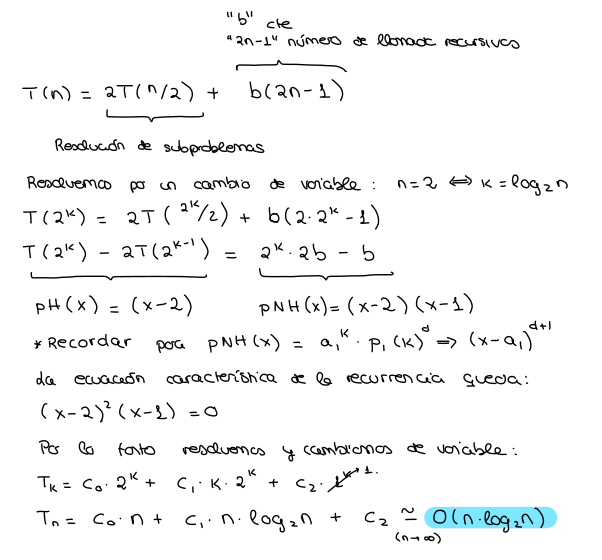 "b" cte
"2n-1" número de llamadas recursivas
T(n) = 2T(n/2) + b(2n-1)
Resolución de subproblemas
Resolvemos por un cambio de variable : n=2 ⟺ k=log₂n
T(2ᵏ) = 2T(2ᵏ/2) + b(2·2ᵏ - 1)
T(2ᵏ) - 2T(2ᵏ⁻¹) = 2ᵏ·2b - b
pH(x) = (x-2) pNH(x) = (x-2)(x-1)
* Recordar para pNH(x) = a₁ᵏ · p₁(k)ᵈ ⇒ (x-a₁)ᵈ⁺¹
La ecuación característica de la recurrencia queda:
(x-2)²(x-1) = 0
Por lo tanto resolvemos y cambiamos de variable :
Tₖ = c₀·2ᵏ + c₁·k·2ᵏ + c₂·1ᵏ 1.
Tₙ = c₀·n + c₁·n·log₂n + c₂ ≃ O(n·log₂n)
(n→∞)